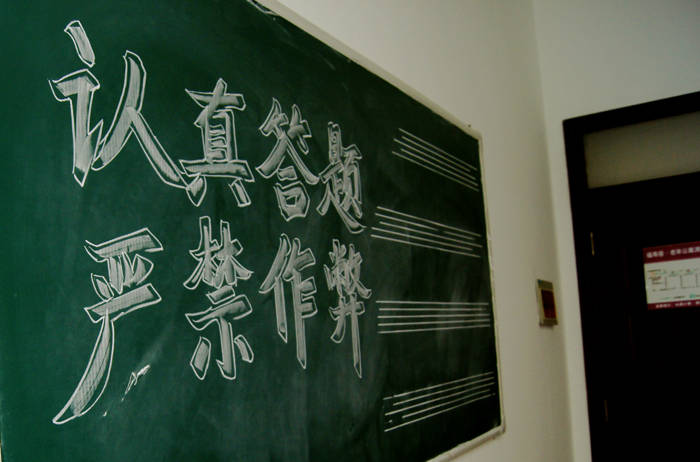 认真答题
严禁作弊